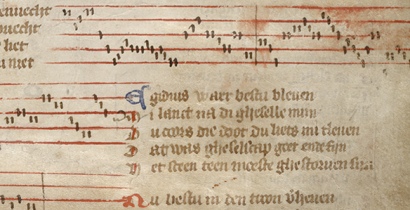 liet
niet
Egidius waer bestu bleven
Mi lanct na di gheselle mijn
Du coors die doot du liets mi tleven
Dat was gheselscap goet ende fijn
Het sceen teen moeste ghestorven sijn
Nu bestu in den troon v̄heven